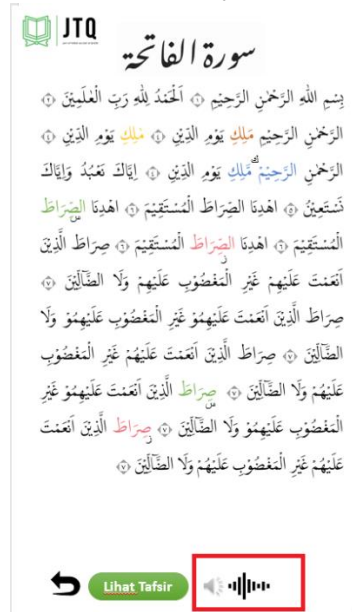 JTQ
سورة الفاتحة
بِسْمِ اللهِ الرَّحْمٰنِ الرَّحِيْمِ ۝١ اَلْحَمْدُ لِلّٰهِ رَبِّ الْعٰلَمِيْنَ ۝٢
الرَّحْمٰنِ الرَّحِيْمِ مَلِكِ يَوْمِ الدِّيْنِ ۝٤ مٰلِكِ يَوْمِ الدِّيْنِ ۝٤
الرَّحْمٰنِ الرَّحِيْمْ مَّلِكِ يَوْمِ الدِّيْنِ ۝٤ اِيَّاكَ نَعْبُدُ وَاِيَّاكَ
نَسْتَعِيْنُ ۝٥ اهْدِنَا الصِّرَاطَ الْمُسْتَقِيْمَ ۝٦ اهْدِنَا الصِّرَاطَ
الْمُسْتَقِيْمَ ۝٦ اهْدِنَا الصِّرَاطَ الْمُسْتَقِيْمَ ۝٦ صِرَاطَ الَّذِيْنَ
اَنْعَمْتَ عَلَيْهِمْ غَيْرِ الْمَغْضُوْبِ عَلَيْهِمْ وَلَا الضَّاۤلِّيْنَ ۝٧
صِرَاطَ الَّذِيْنَ اَنْعَمْتَ عَلَيْهِمُوْ غَيْرِ الْمَغْضُوْبِ عَلَيْهِمُوْ وَلَا
الضَّاۤلِّيْنَ ۝٧ صِرَاطَ الَّذِيْنَ اَنْعَمْتَ عَلَيْهُمْ غَيْرِ الْمَغْضُوْبِ
عَلَيْهُمْ وَلَا الضَّاۤلِّيْنَ ۝٧ صِرَاطَ الَّذِيْنَ اَنْعَمْتَ عَلَيْهِمُوْ غَيْرِ
الْمَغْضُوْبِ عَلَيْهِمُوْ وَلَا الضَّاۤلِّيْنَ ۝٧ صِرَاطَ الَّذِيْنَ اَنْعَمْتَ
عَلَيْهُمْ غَيْرِ الْمَغْضُوْبِ عَلَيْهُمْ وَلَا الضَّاۤلِّيْنَ ۝٧
Lihat Tafsir